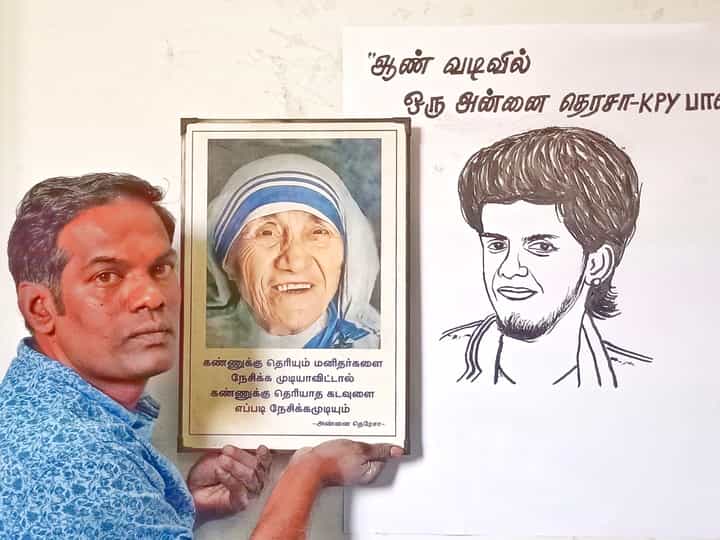 "ஆண் வடிவில்
ஒரு அன்னை தெரசா-KPY
கண்ணுக்கு தெரியும் மனிதர்களை
நேசிக்க முடியாவிட்டால்
கண்ணுக்கு தெரியாத கடவுளை
எப்படி நேசிக்கமுடியும்
-அன்னை தெரேசா-